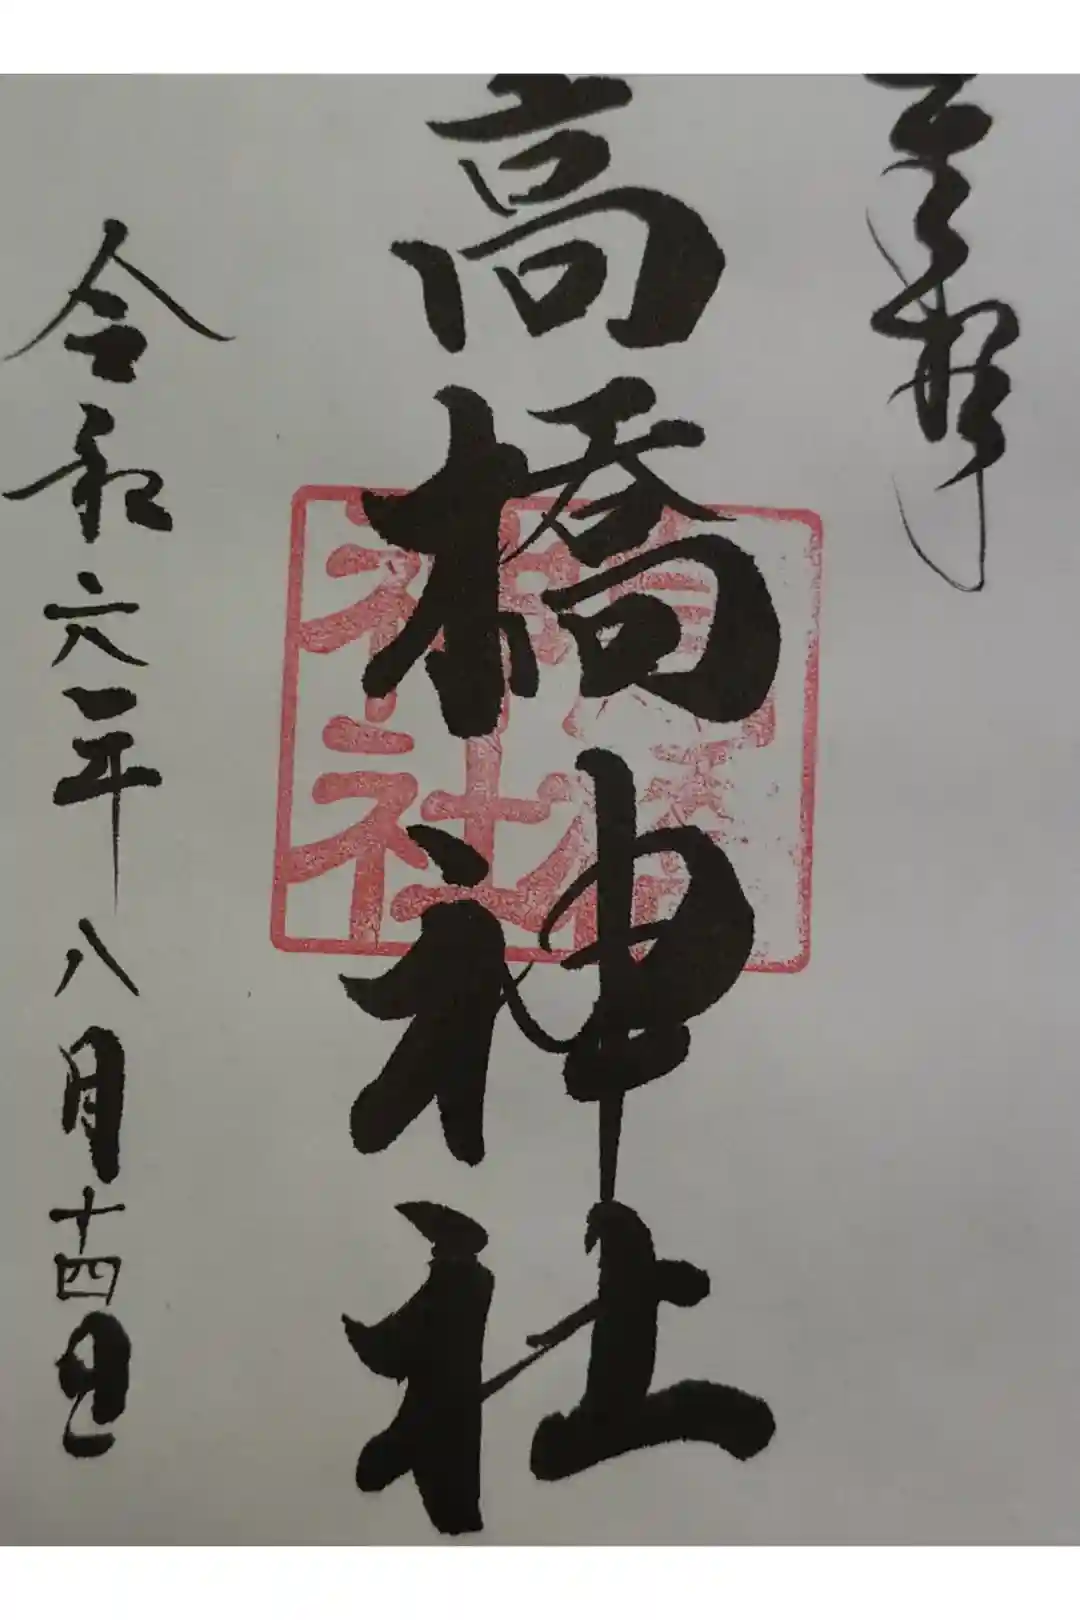 奉拝
高橋神社
高橋神社
令和六年八月十四日